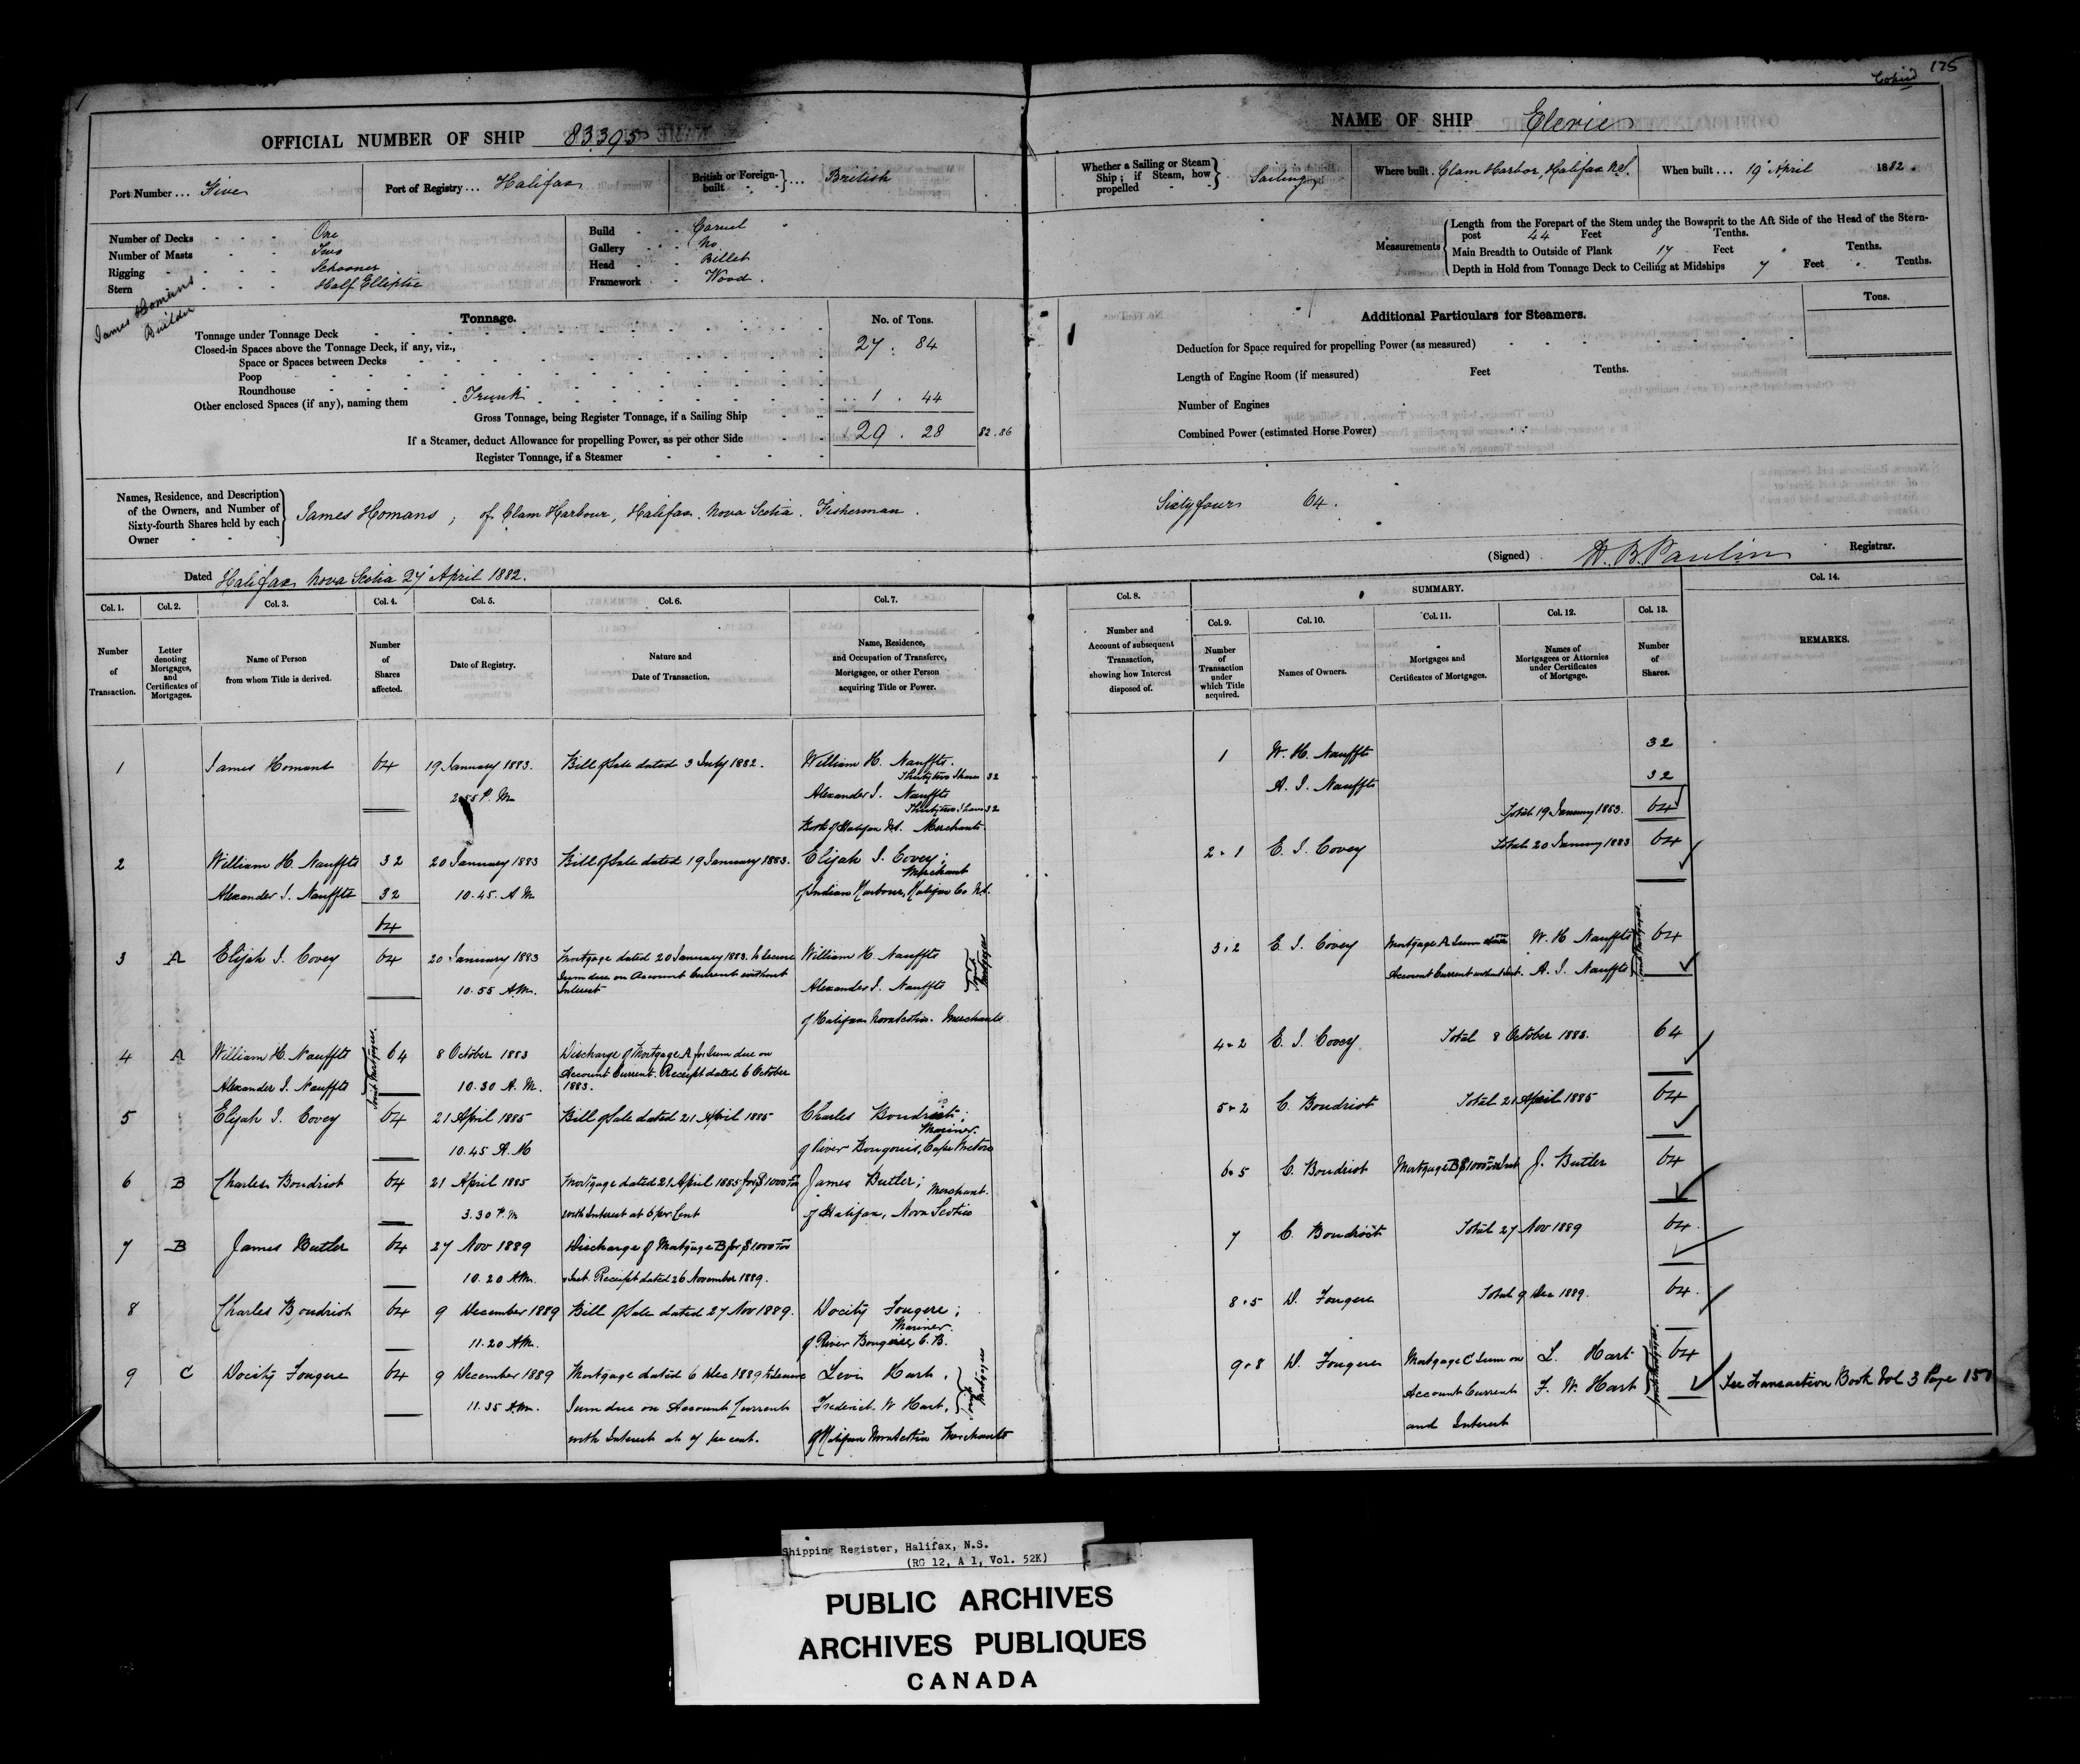 Copied 175
OFFICIAL NUMBER OF SHIP 83395
Port Number ... Five
Port of Registry ... Halifax
British or Foreign-built ... British
Number of Decks One
Number of Masts Two
Rigging Schooner
Stern Half Elliptic
Build Carvel
Gallery No
Head Billet
Framework Wood.
James Homans
Builder
Tonnage.
No. of Tons.
Tonnage under Tonnage Deck
27 . 84
Closed-in Spaces above the Tonnage Deck, if any, viz.,
Space or Spaces between Decks
Poop
Roundhouse
Other enclosed Spaces (if any), naming them Trunk 1 . 44
Gross Tonnage, being Register Tonnage, if a Sailing Ship
If a Steamer, deduct Allowance for propelling Power, as per other Side 29 . 28 82.86
Register Tonnage, if a Steamer
Names, Residence, and Description
of the Owners, and Number of
Sixty-fourth Shares held by each
Owner
James Homans, of Clam Harbour, Halifax. Nova Scotia. Fisherman.
Dated Halifax Nova Scotia 27 April 1882.
NAME OF SHIP
Whether a Sailing or Steam Ship; if Steam, how propelled Sailing
Where built. Clam Harbor, Halifax N.S.
When built ... 19 April 1882.
Measurements
Length from the Forepart of the Stem under the Bowsprit to the Aft Side of the Head of the Stern-
post 44 Feet 8 Tenths.
Main Breadth to Outside of Plank 17 Feet Tenths.
Depth in Hold from Tonnage Deck to Ceiling at Midships 7 Feet Tenths.
Tons.
Additional Particulars for Steamers.
Deduction for Space required for propelling Power (as measured)
Length of Engine Room (if measured) Feet Tenths.
Number of Engines
Combined Power (estimated Horse Power)
Sixty four 64.
(Signed) Registrar.
Col. 1. Col. 2. Col. 3. Col. 4. Col. 5. Col. 6. Col. 7.
Number of Transaction.
Letter denoting Mortgages, and Certificates of Mortgages.
Name of Person from whom Title is derived.
Number of Shares affected.
Date of Registry.
Nature and Date of Transaction.
Name, Residence, and Occupation of Transferee, Mortgagee, or other Person acquiring Title or Power.
1 James Homans 64 19 January 1883. Bill of Sale dated 3 July 1882. William H. Nauffts.
Thirty two Shares 32
2.55 P.M. Alexander I. Nauffts
Thirty two Shares 32
Both of Halifax N.S. Merchants.
2 William H. Nauffts 32 20 January 1883 Bill of Sale dated 19 January 1883. Elijah I. Covey;
Merchant
Alexander I. Nauffts 32 10.45. A.M. of Indian Harbour, Halifax Co N.S.
64
3 A Elijah I. Covey 64 20 January 1883 Mortgage dated 20 January 1883. to secure William H. Nauffts
Sum due on Account Current without
10.55 A.M. Interest Alexander I. Nauffts
Joint Mortgagees
of Halifax Nova Scotia. Merchants
4 A William H. Nauffts 64 8 October 1883 Discharge of Mortgage A for Sum due on
Account Current. Receipt dated 6 October
Alexander I. Nauffts 10.30 A.M. 1883.
Joint Mortgagees.
5 Elijah I. Covey 64 21 April 1885 Bill of Sale dated 21 April 1885 Charles Boudriot;
Mariner.
10.45 A.M of River Bourgeois, Cape Breton
6 B Charles Boudriot 64 21 April 1885 Mortgage dated 21 April 1885 for $1000 James Butler;
Merchant.
3.30 P.M with Interest at 6 per Cent of Halifax, Nova Scotia
7 B James Butler 64 27 Nov 1889 Discharge of Mortgage B for $1000
10.20 A.M. & Int. Receipt dated 26 November 1889.
8 Charles Boudriot 64 9 December 1889 Bill of Sale dated 27 Nov 1889. Docity Fougere;
Mariner.
11.20 A.M. of River Bourgeois C.B.
9 C Docity Fougere 64 9 December 1889 Mortgage dated 6 Dec 1889 to secure Levi Hart,
11.35 A.M. Sum due on Account Current Frederick W Hart,
Joint Mortgagees
with Interest at 7 per cent. of Halifax Nova Scotia Merchants
Col. 8. SUMMARY. Col. 14.
Col. 9. Col. 10. Col. 11. Col. 12. Col. 13.
Number and Account of subsequent Transaction, showing how Interest disposed of.
Number of Transaction under which Title acquired.
Names of Owners.
Mortgages and Certificates of Mortgages.
Names of Mortgagees or Attornies under Certificates of Mortgage.
Number of Shares.
REMARKS.
1 W. H. Nauffts 32
A. I. Nauffts 32
Total 19 January 1883. 64
2.1 E. I. Covey Total 20 January 1883 64
3.2 E. I. Covey Mortgage A Sum due on W. H. Nauffts 64
Account Current without Int. A. I. Nauffts
Joint Mortgagees.
4.2 E. I. Covey Total 8 October 1883. 64
5.2 C. Boudriot Total 21 April 1885 64
6.5 C. Boudriot Mortgage B $1000 & Int J. Butler 64
7 C. Boudriot Total 27 Nov 1889 64
8.5 D. Fougere Total 9 Dec 1889. 64
9.8 D. Fougere Mortgage C Sum on L. Hart 64
Account Current F. W. Hart
Joint Mortgagees.
and Interest
See Transaction Book Vol 3 Page 151
Shipping Register, Halifax, N.S.
(RG 12, A 1, Vol. 52K)
PUBLIC ARCHIVES
ARCHIVES PUBLIQUES
CANADA